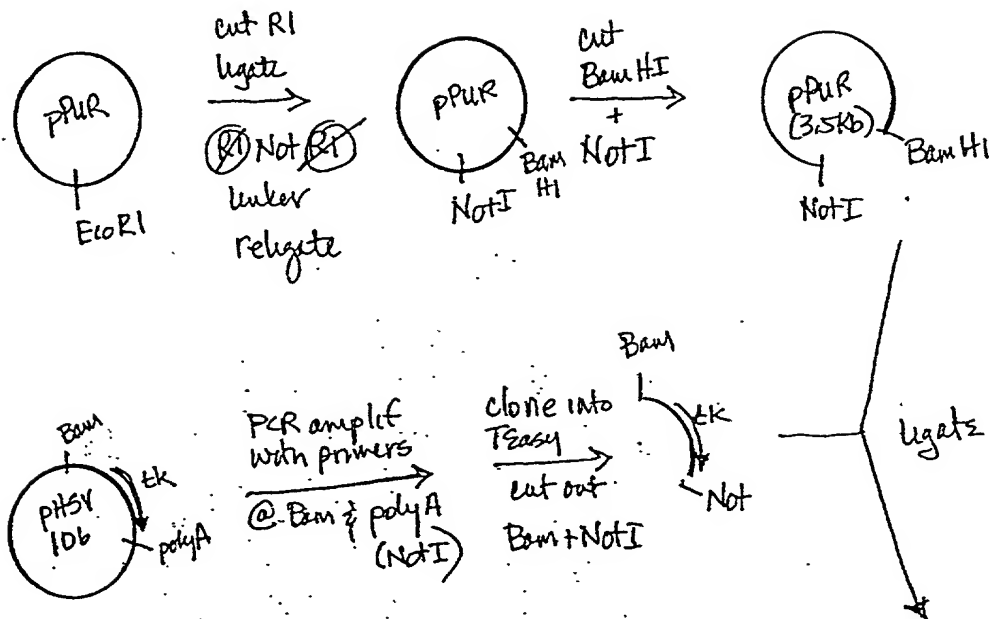 pPUR
EcoRI
cut RI
ligate
RI Not RI
linker
religate
pPUR
NotI
Bam
HI
cut
BamHI
+
NotI
pPUR
(3.5Kb)
BamHI
NotI
Bam
pHSV
106
tk
polyA
PCR amplif
with primers
@ Bam & polyA
(NotI)
clone into
TEasy
cut out
Bam+NotI
Bam
tk
Not
ligate